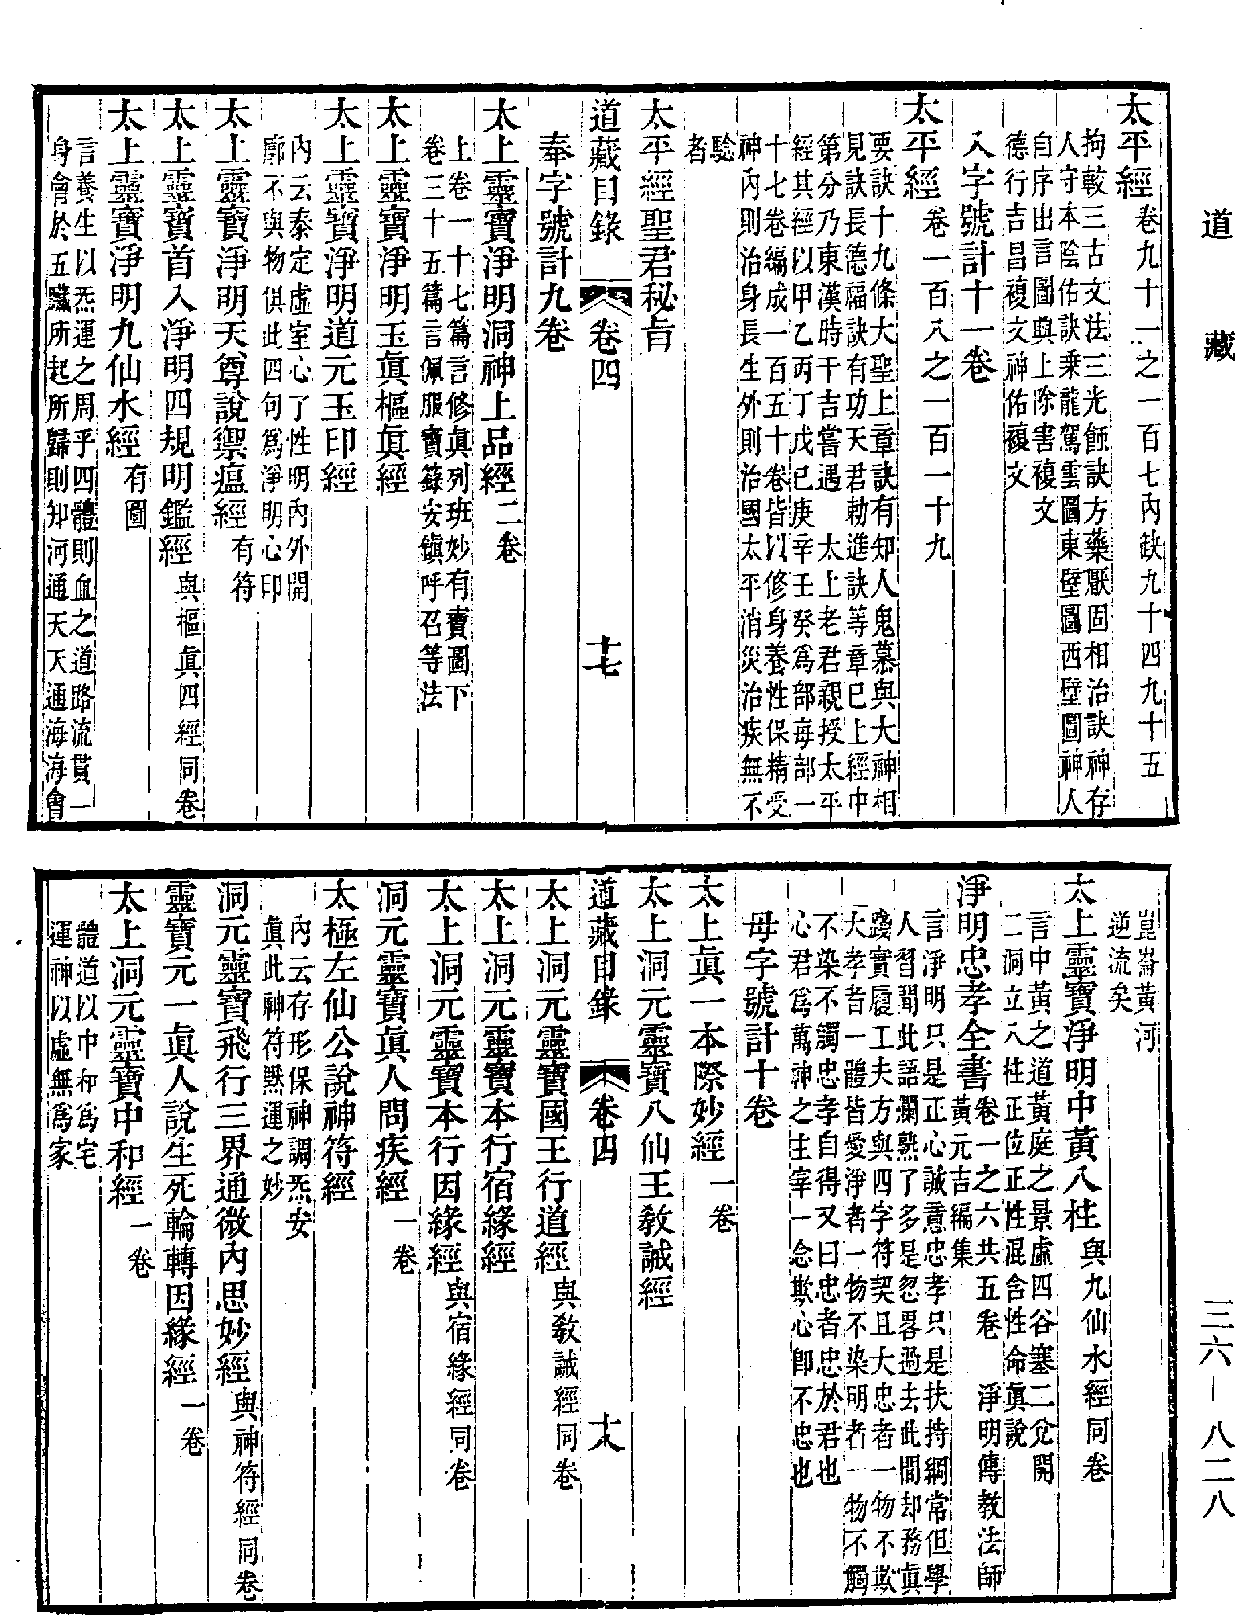 道藏
三六—八二八
太平經卷九十一之一百七內缺九十四九十五
拘較三古文法三光蝕訣方藥厭固相治訣神存
人守本陰佑訣乘龍駕雲圖東壁圖西壁圖神人
自序出言圖與上除害複文
德行吉昌複文神佑複文
入字號計十一卷
太平經卷一百八之一百一十九
要訣十九條大聖上章訣有知人鬼慕與大神相
見訣長德福訣有功天君勅進訣等章已上經中
第分乃東漢時干吉嘗遇　太上老君親授太平
經其經以甲乙丙丁戊己庚辛壬癸爲部每部一
十七卷編成一百五十卷皆以修身養性保精受
神內則治身長生外則治國太平消災治疾無不
驗
者
太平經聖君秘旨
道藏目錄　卷四　十七
奉字號計九卷
太上靈寶淨明洞神上品經二卷
上卷一十七篇言修眞列班妙有寶圖下
卷三十五篇言佩服寶籙安鎮呼召等法
太上靈寶淨明玉眞樞眞經
太上靈寶淨明道元玉印經
內云泰定虛室心了性明內外開
廓不與物俱此四句爲淨明心印
太上靈寶淨明天尊說禦瘟經有符
太上靈寶首入淨明四規明鑑經與樞眞四經同卷
太上靈寶淨明九仙水經有圖
言養生以炁運之周乎四體則血之道路流貫一
身會於五臟所起所歸則知河通天天通海海會
崑崙黃河
逆流矣
太上靈寶淨明中黃八柱與九仙水經同卷
言中黃之道黃庭之景虛四谷塞二兌開
二洞立八柱正位正性混合性命眞說
淨明忠孝全書卷一之六共五卷　淨明傳教法師
黃元吉編集
言淨明只是正心誠意忠孝只是扶持綱常但學
人習聞此語爛熟了多是忽畧過去此間却務眞
踐實履工夫方與四字符契且大忠者一物不欺
大孝者一體皆愛淨者一物不染明者一物不觸
不染不觸忠孝自得又曰忠者忠於君也
心君爲萬神之主宰一念欺心卽不忠也
母字號計十卷
太上眞一本際妙經一卷
太上洞元靈寶八仙王敎誡經
道藏目錄　卷四　十八
太上洞元靈寶國王行道經與敎誡經同卷
太上洞元靈寶本行宿緣經
太上洞元靈寶本行因緣經與宿緣經同卷
洞元靈寶眞人問疾經一卷
太極左仙公說神符經
內云存形保神調炁安
眞此神符默運之妙
洞元靈寶飛行三界通微內思妙經與神符經同卷
靈寶元一眞人說生死輪轉因緣經一卷
太上洞元靈寶中和經一卷
體道以中和爲宅
運神以虛無爲家